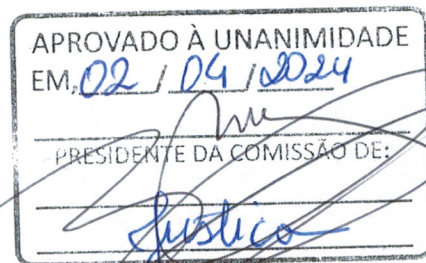 APROVADO À UNANIMIDADE
EM, 02 / 04 / 2024
PRESIDENTE DA COMISSÃO DE:
Justiça